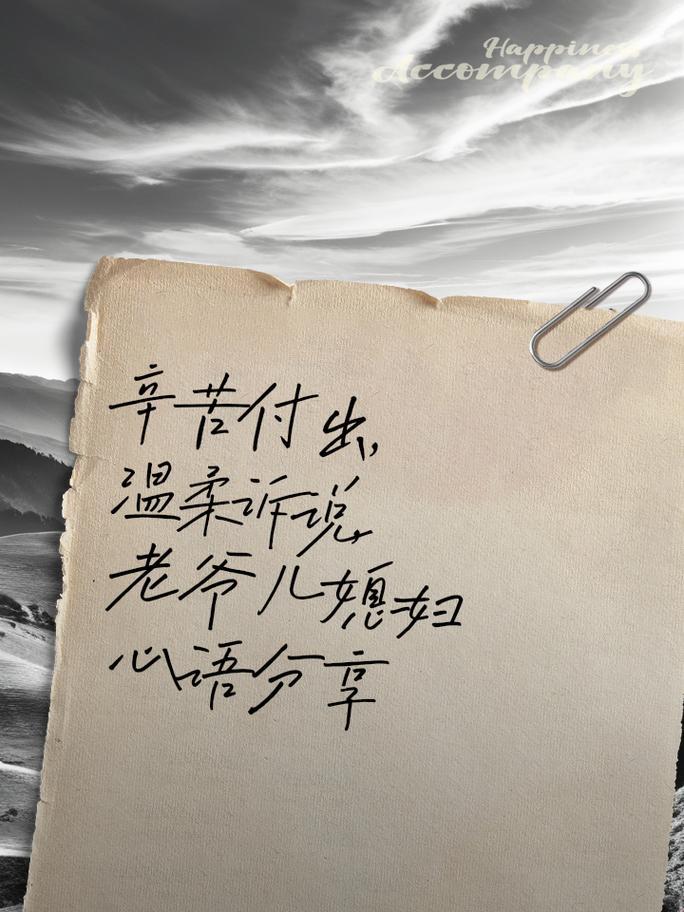 Happiness
Accompany
辛苦付出,
温柔诉说,
老爷儿媳妇
心语分享